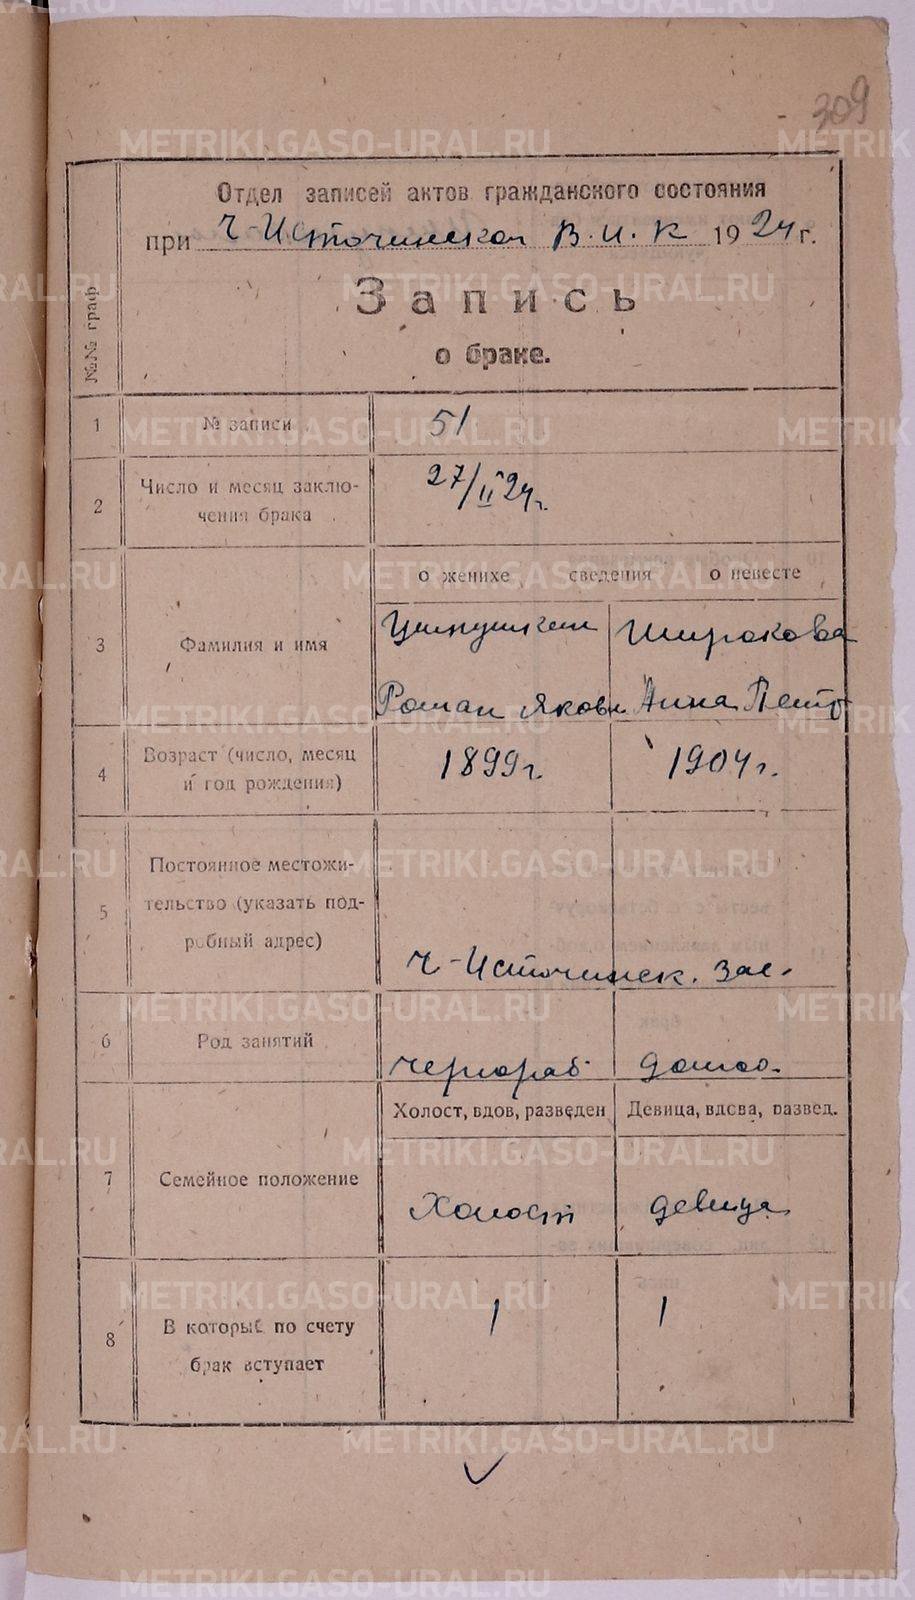 309
Отдел записей актов гражданского состояния
при Ч-Источинской В. И. К 1924 г.
№№ граф
Запись
о браке.
1 № записи 51
2 Число и месяц заклю-
чения брака 27/II 24 г.
о женихе сведения о невесте
3 Фамилия и имя Широкова
Роман Яковл Анна Петр
4 Возраст (число, месяц
и год рождения) 1899 г. 1904 г.
5 Постоянное местожи-
тельство (указать под-
робный адрес) Ч-Источинск. зав.
6 Род занятий чернораб домох.
Холост, вдов, разведен Девица, вдова, развед.
7 Семейное положение Холост девица
8 В который по счету
брак вступает 1 1
METRIKI.GASO-URAL.RU